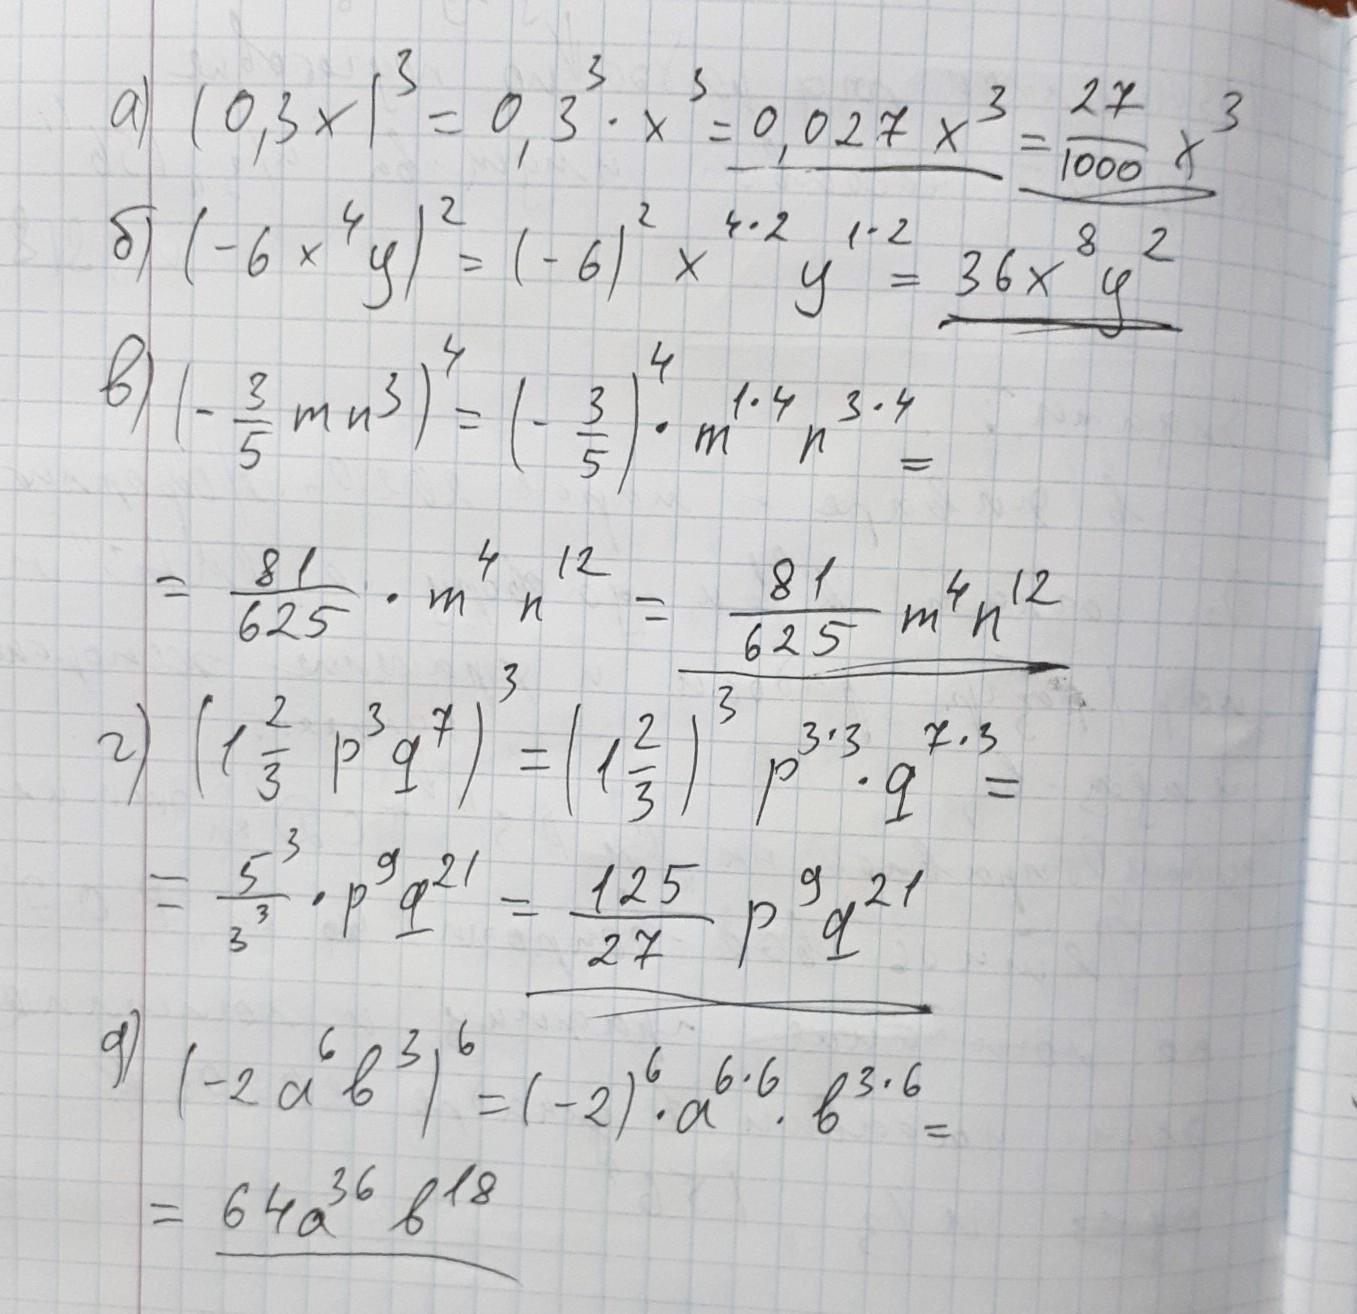 а) (0,3x)³ = 0,3³ · x³ = 0,027 x³ = 27/1000 x³
б) (-6 x⁴y)² = (-6)² x⁴·² y¹·² = 36x⁸y²
в) (-3/5 mn³)⁴ = (-3/5)⁴ · m¹·⁴ n³·⁴ =
= 81/625 · m⁴ n¹² = 81/625 m⁴n¹²
г) (1 2/3 p³q⁷)³ = (1 2/3)³ p³·³ · q⁷·³ =
= 5³/3³ · p⁹q²¹ = 125/27 p⁹q²¹
д) (-2a⁶b³)⁶ = (-2)⁶ · a⁶·⁶ · b³·⁶ =
= 64a³⁶ b¹⁸